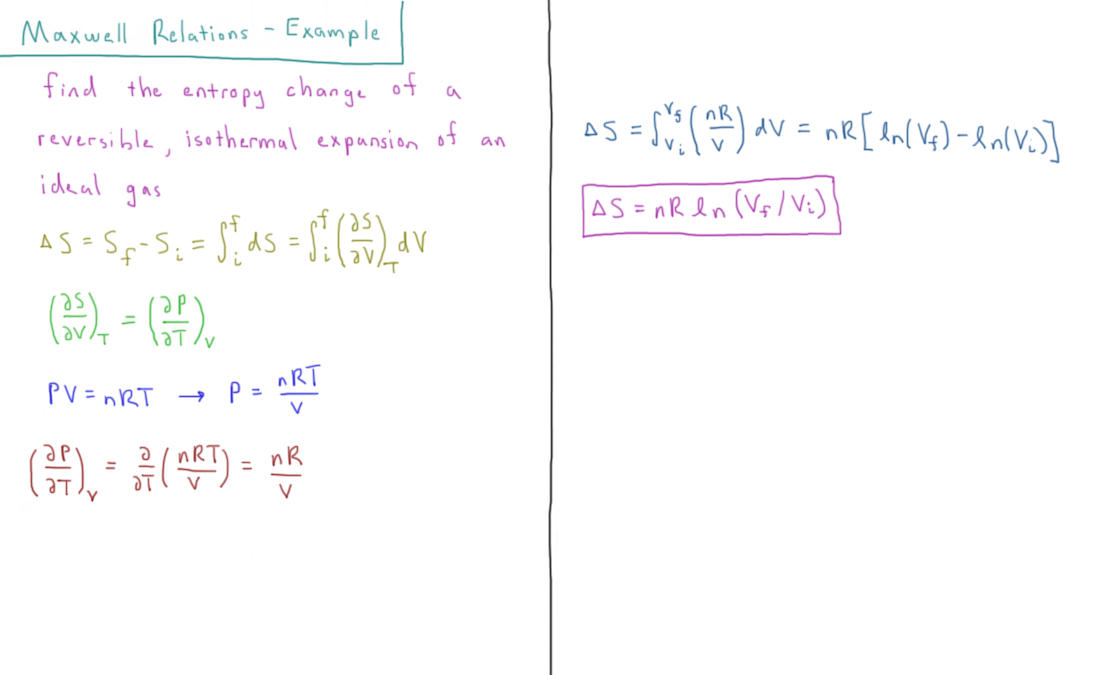 Maxwell Relations - Example
find the entropy change of a
reversible, isothermal expansion of an
ideal gas
ΔS = S_f - S_i = ∫_i^f dS = ∫_i^f (∂S/∂V)_T dV
(∂S/∂V)_T = (∂P/∂T)_V
PV = nRT → P = nRT/V
(∂P/∂T)_V = ∂/∂T (nRT/V) = nR/V
ΔS = ∫_{V_i}^{V_f} (nR/V) dV = nR[ln(V_f) - ln(V_i)]
ΔS = nR ln (V_f / V_i)